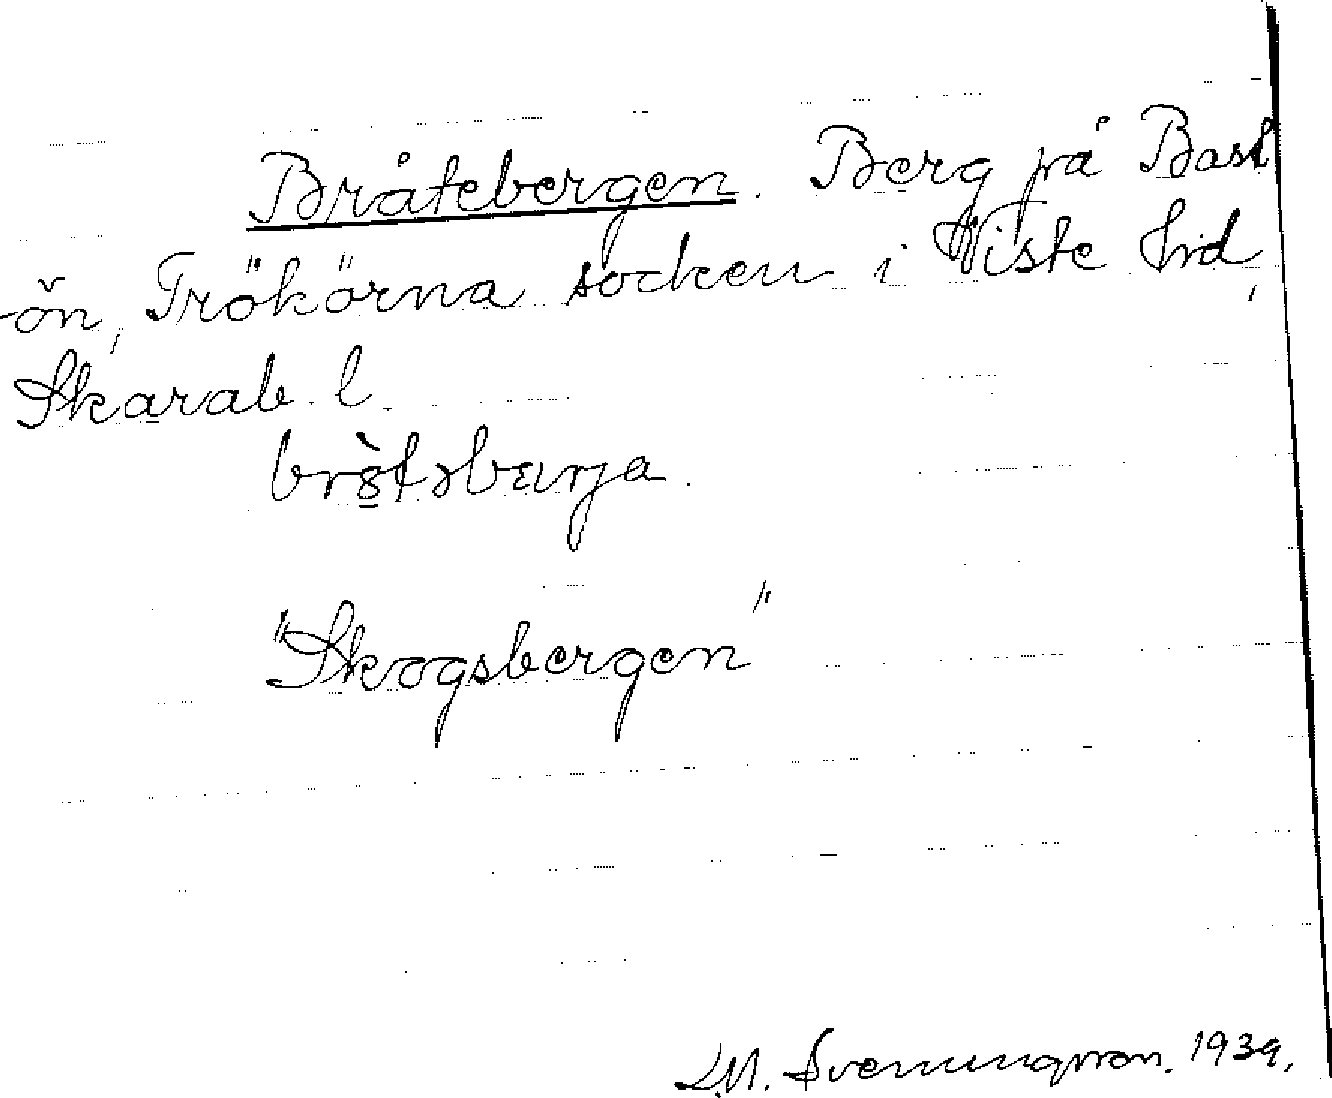 Bråtebergen. Berg på Bast
-ön, Trökörna socken i Viste hrd,
Skarab. l.
brètəbærja.
"Skogsbergen"
Svenungsson. 1939.